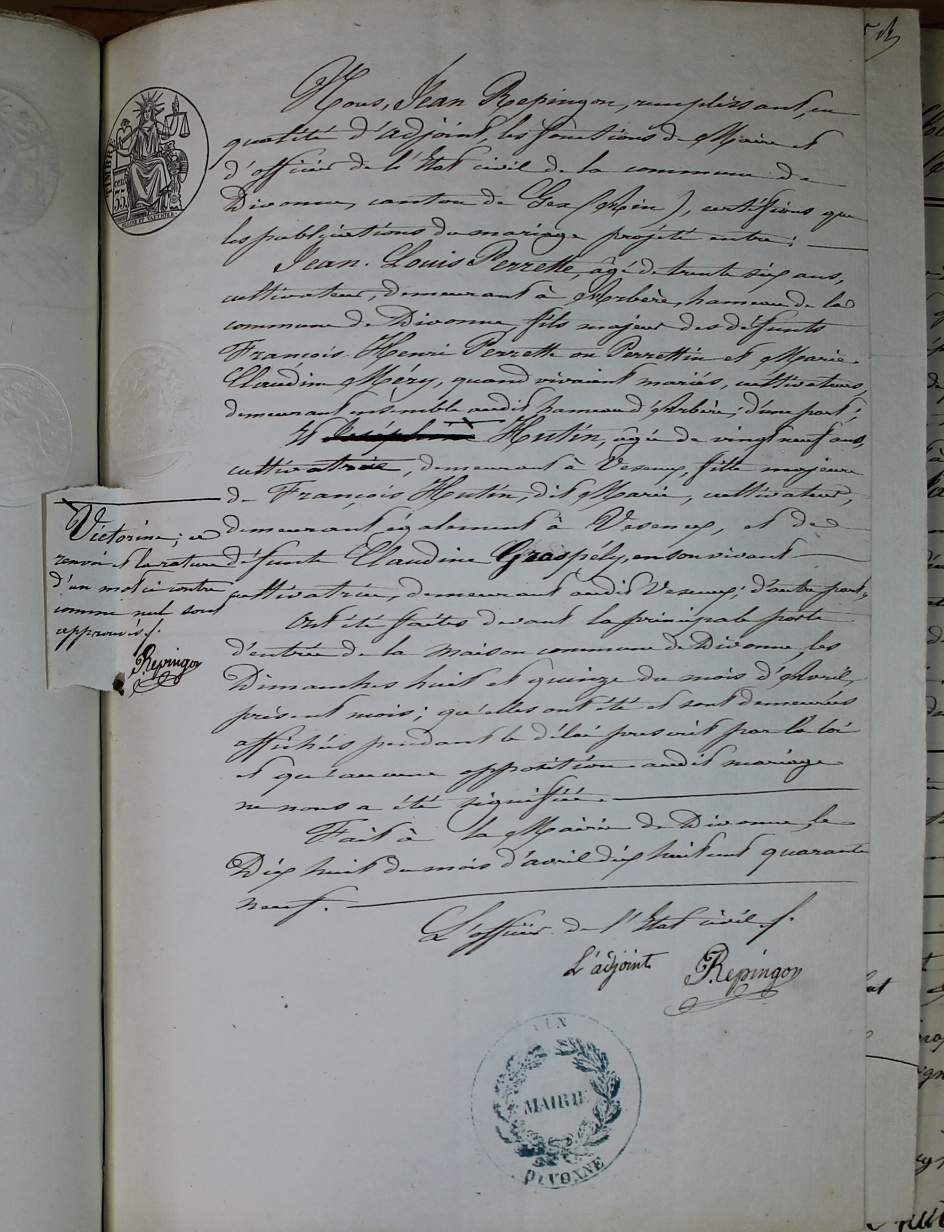 Nous, Jean Repingon, remplissant, en
qualité d'adjoint, les fonctions de Maire et
d'officier de l'Etat civil de la commune de
Divonne, canton de Gex (Ain), certifions que
les publications du mariage projeté entre:
Jean-Louis Perrette, âgé de trente six ans,
cultivateur, demeurant à Arbère, hameau de la
commune de Divonne, fils majeur des défunts
François-Henri Perrette ou Perrettin et Marie-
Claudine Méry, quand vivaient mariés, cultivateurs,
demeurant ensemble audit hameau d'Arbère, d'une part;
Et Hutin, âgée de vingt neuf ans,
cultivatrice, demeurant à Vesency, fille majeure
de François Hutin, dit Marie, cultivateur,
demeurant également à Vesency, et de
défunte Claudine Grospély, en son vivant
cultivatrice, demeurant audit Vesency, d'autre part,
Ont été faites devant la principale porte
d'entrée de la maison commune de Divonne, les
Dimanches huit et quinze du mois d'Avril,
présent mois; qu'elles ont été et sont demeurées
affichées pendant le délai prescrit par la loi
et qu'aucune opposition audit mariage
ne nous a été signifiée.
Fait à la Mairie de Divonne, le
Dix huit du mois d'avril dix huit cent quarante
neuf.
L'officier de l'Etat civil.
L'adjoint Repingon
Victorine; ce
renvoi et la rature
d'un mot ci contre
comme nul sont
approuvés.
Repingon
AIN
MAIRIE
DIVONNE